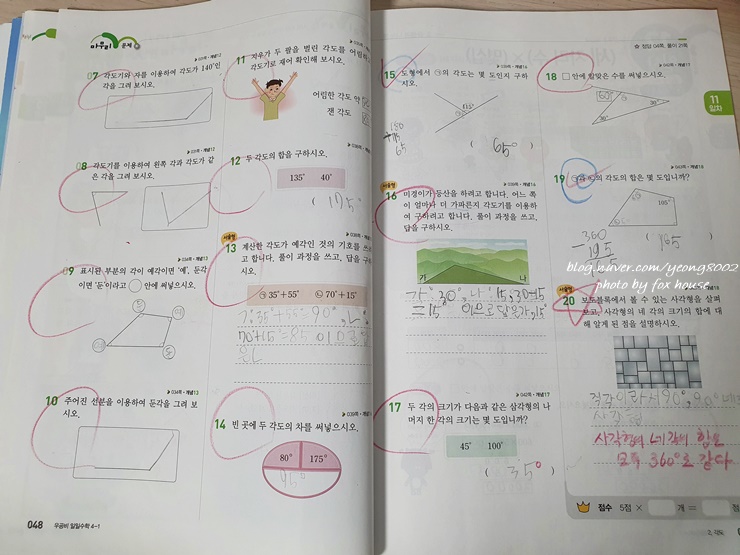 마무리 문제
▶031쪽 · 개념12
07 각도기와 자를 이용하여 각도가 140°인
각을 그려 보시오.
08 각도기를 이용하여 왼쪽 각과 각도가 같
은 각을 그려 보시오.
▶034쪽 · 개념13
09 표시된 부분의 각이 예각이면 '예', 둔각
이면 '둔'이라고 ○ 안에 써넣으시오.
▶034쪽 · 개념13
10 주어진 선분을 이용하여 둔각을 그려 보
시오.
048 우공비 일일수학 4-1
11 지우가 두 팔을 벌린 각도를 어림하고
각도기로 재어 확인해 보시오.
어림한 각도 약
잰 각도
12 두 각도의 합을 구하시오.
135° 40°
( 175°
서술형
13 계산한 각도가 예각인 것의 기호를 쓰려
고 합니다. 풀이 과정을 쓰고, 답을 구하
시오.
㉠ 35°+55° ㉡ 70°+15°
14 빈 곳에 두 각도의 차를 써넣으시오.
80° 175°
95°
▶039쪽 · 개념16
15 도형에서 ㉠의 각도는 몇 도인지 구하
시오.
115°
( 65° )
서술형
▶039쪽 · 개념16
16 미경이가 등산을 하려고 합니다. 어느 쪽
이 얼마나 더 가파른지 각도기를 이용하
여 구하려고 합니다. 풀이 과정을 쓰고,
답을 구하시오.
가 나
▶042쪽 · 개념17
17 두 각의 크기가 다음과 같은 삼각형의 나
머지 한 각의 크기는 몇 도입니까?
45° 100°
( 35° )
정답 04쪽, 풀이 21쪽
▶042쪽 · 개념17
18 □ 안에 알맞은 수를 써넣으시오.
30°
11
일차
▶043쪽 · 개념18
19 각도의 합은 몇 도입니까?
105°
360
195
( 165 )
blog.naver.com/yeong8002
photo by fox house
서술형
20 보도블록에서 볼 수 있는 사각형을 살펴
보고, 사각형의 네 각의 크기의 합에 대
해 알게 된 점을 설명하시오.
사각형의 네 각의 합은
모두 360°로 같다.
점수 5점 × 개 = 점
2. 각도